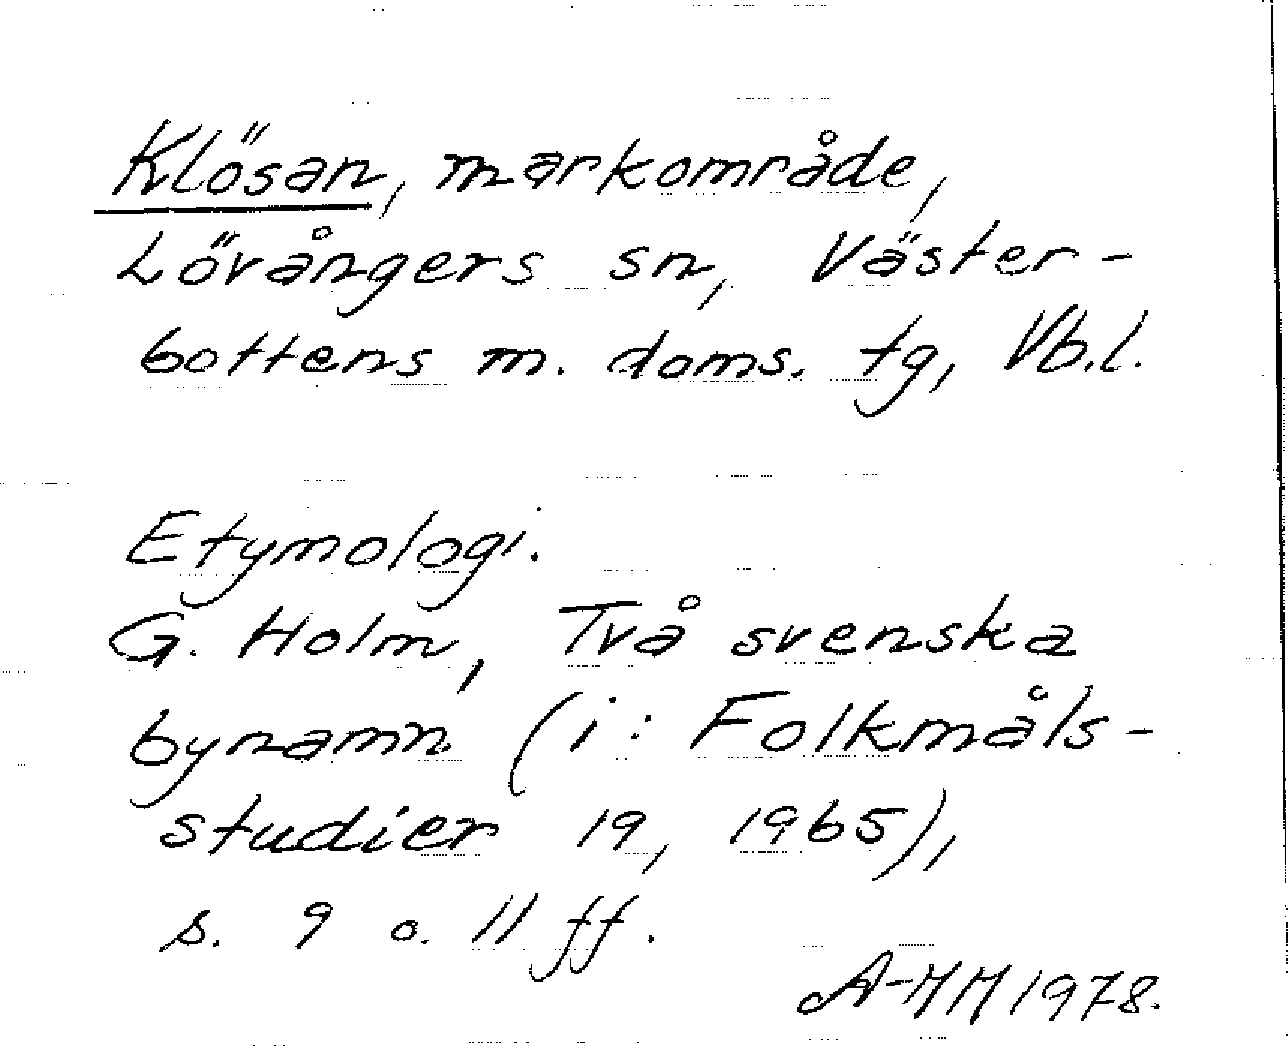 Klösan, markområde,
Lövångers sn, Väster-
bottens m. doms. tg, Vb.l.
Etymologi.
G. Holm, Två svenska
bynamn (i: Folkmåls-
studier 19, 1965),
s. 9 o. 11 ff.
A-MM 1978.